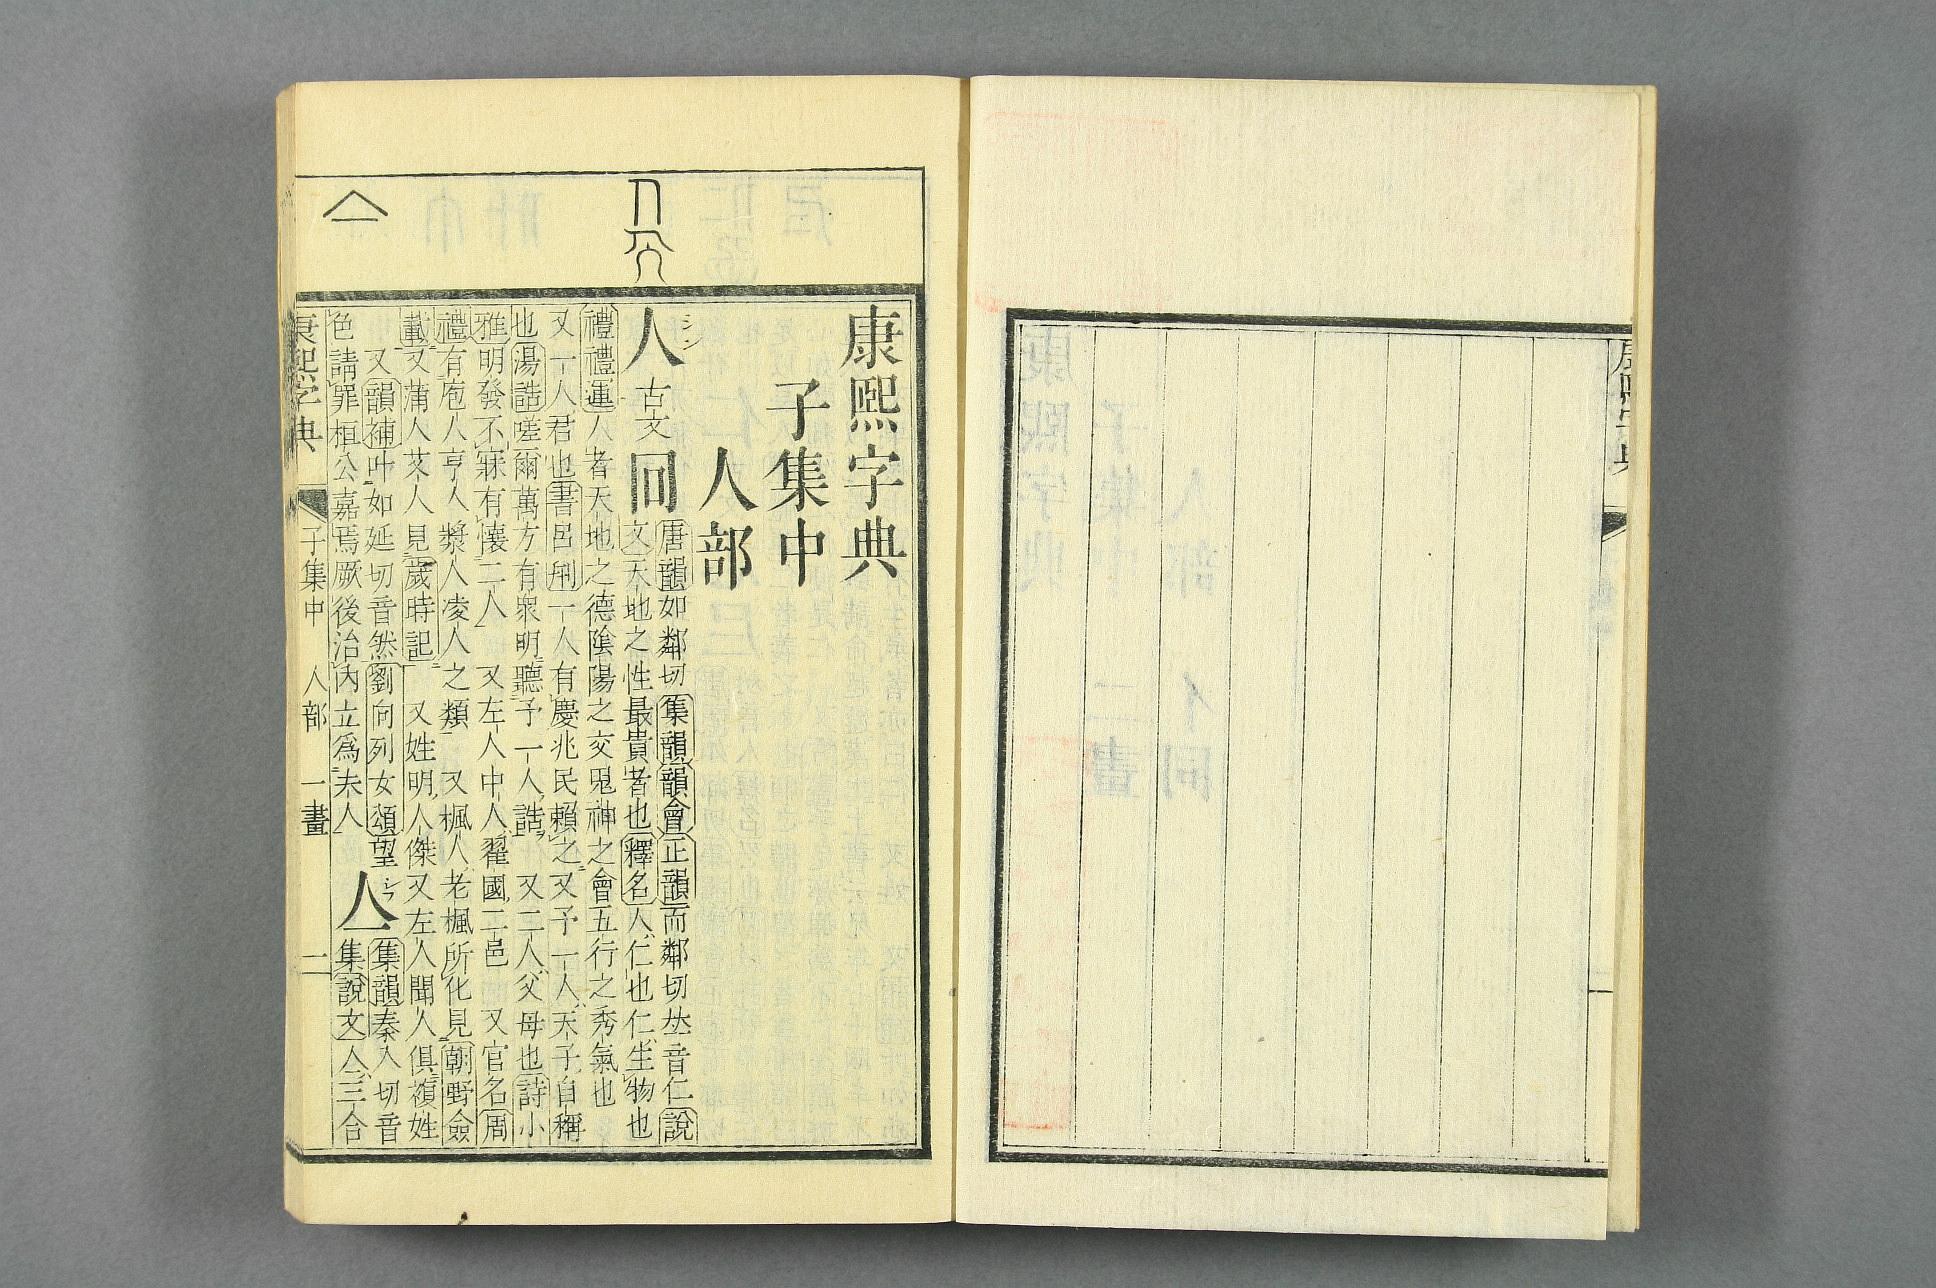 康熙字典
子集中
人部
人 シン 古文 囘
唐韻如鄰切集韻韻會正韻而鄰切𠀤音仁說
文天地之性最貴者也釋名人仁也仁生物也
禮禮運人者天地之德隂陽之交鬼神之會五行之秀氣也
又一人君也書呂𠛬一人有慶兆民賴之又予一人天子自稱
也湯誥嗟爾萬方有眾明聽予一人誥 又二人父母也詩小
雅明發不寐有懷二人 又左人中人翟國二邑 又官名周
禮有庖人亨人漿人凌人之類 又楓人老楓所化見朝野僉
載又蒲人艾人見歲時記 又姓明人傑又左人聞人俱複姓
又韻補叶如延切音然劉向列女頌望
色請罪桓公嘉焉厥後治內立爲夫人
亼 シフ
集韻秦入切音
集說文亼三合
康熙字典 子集中 人部 一畫 二